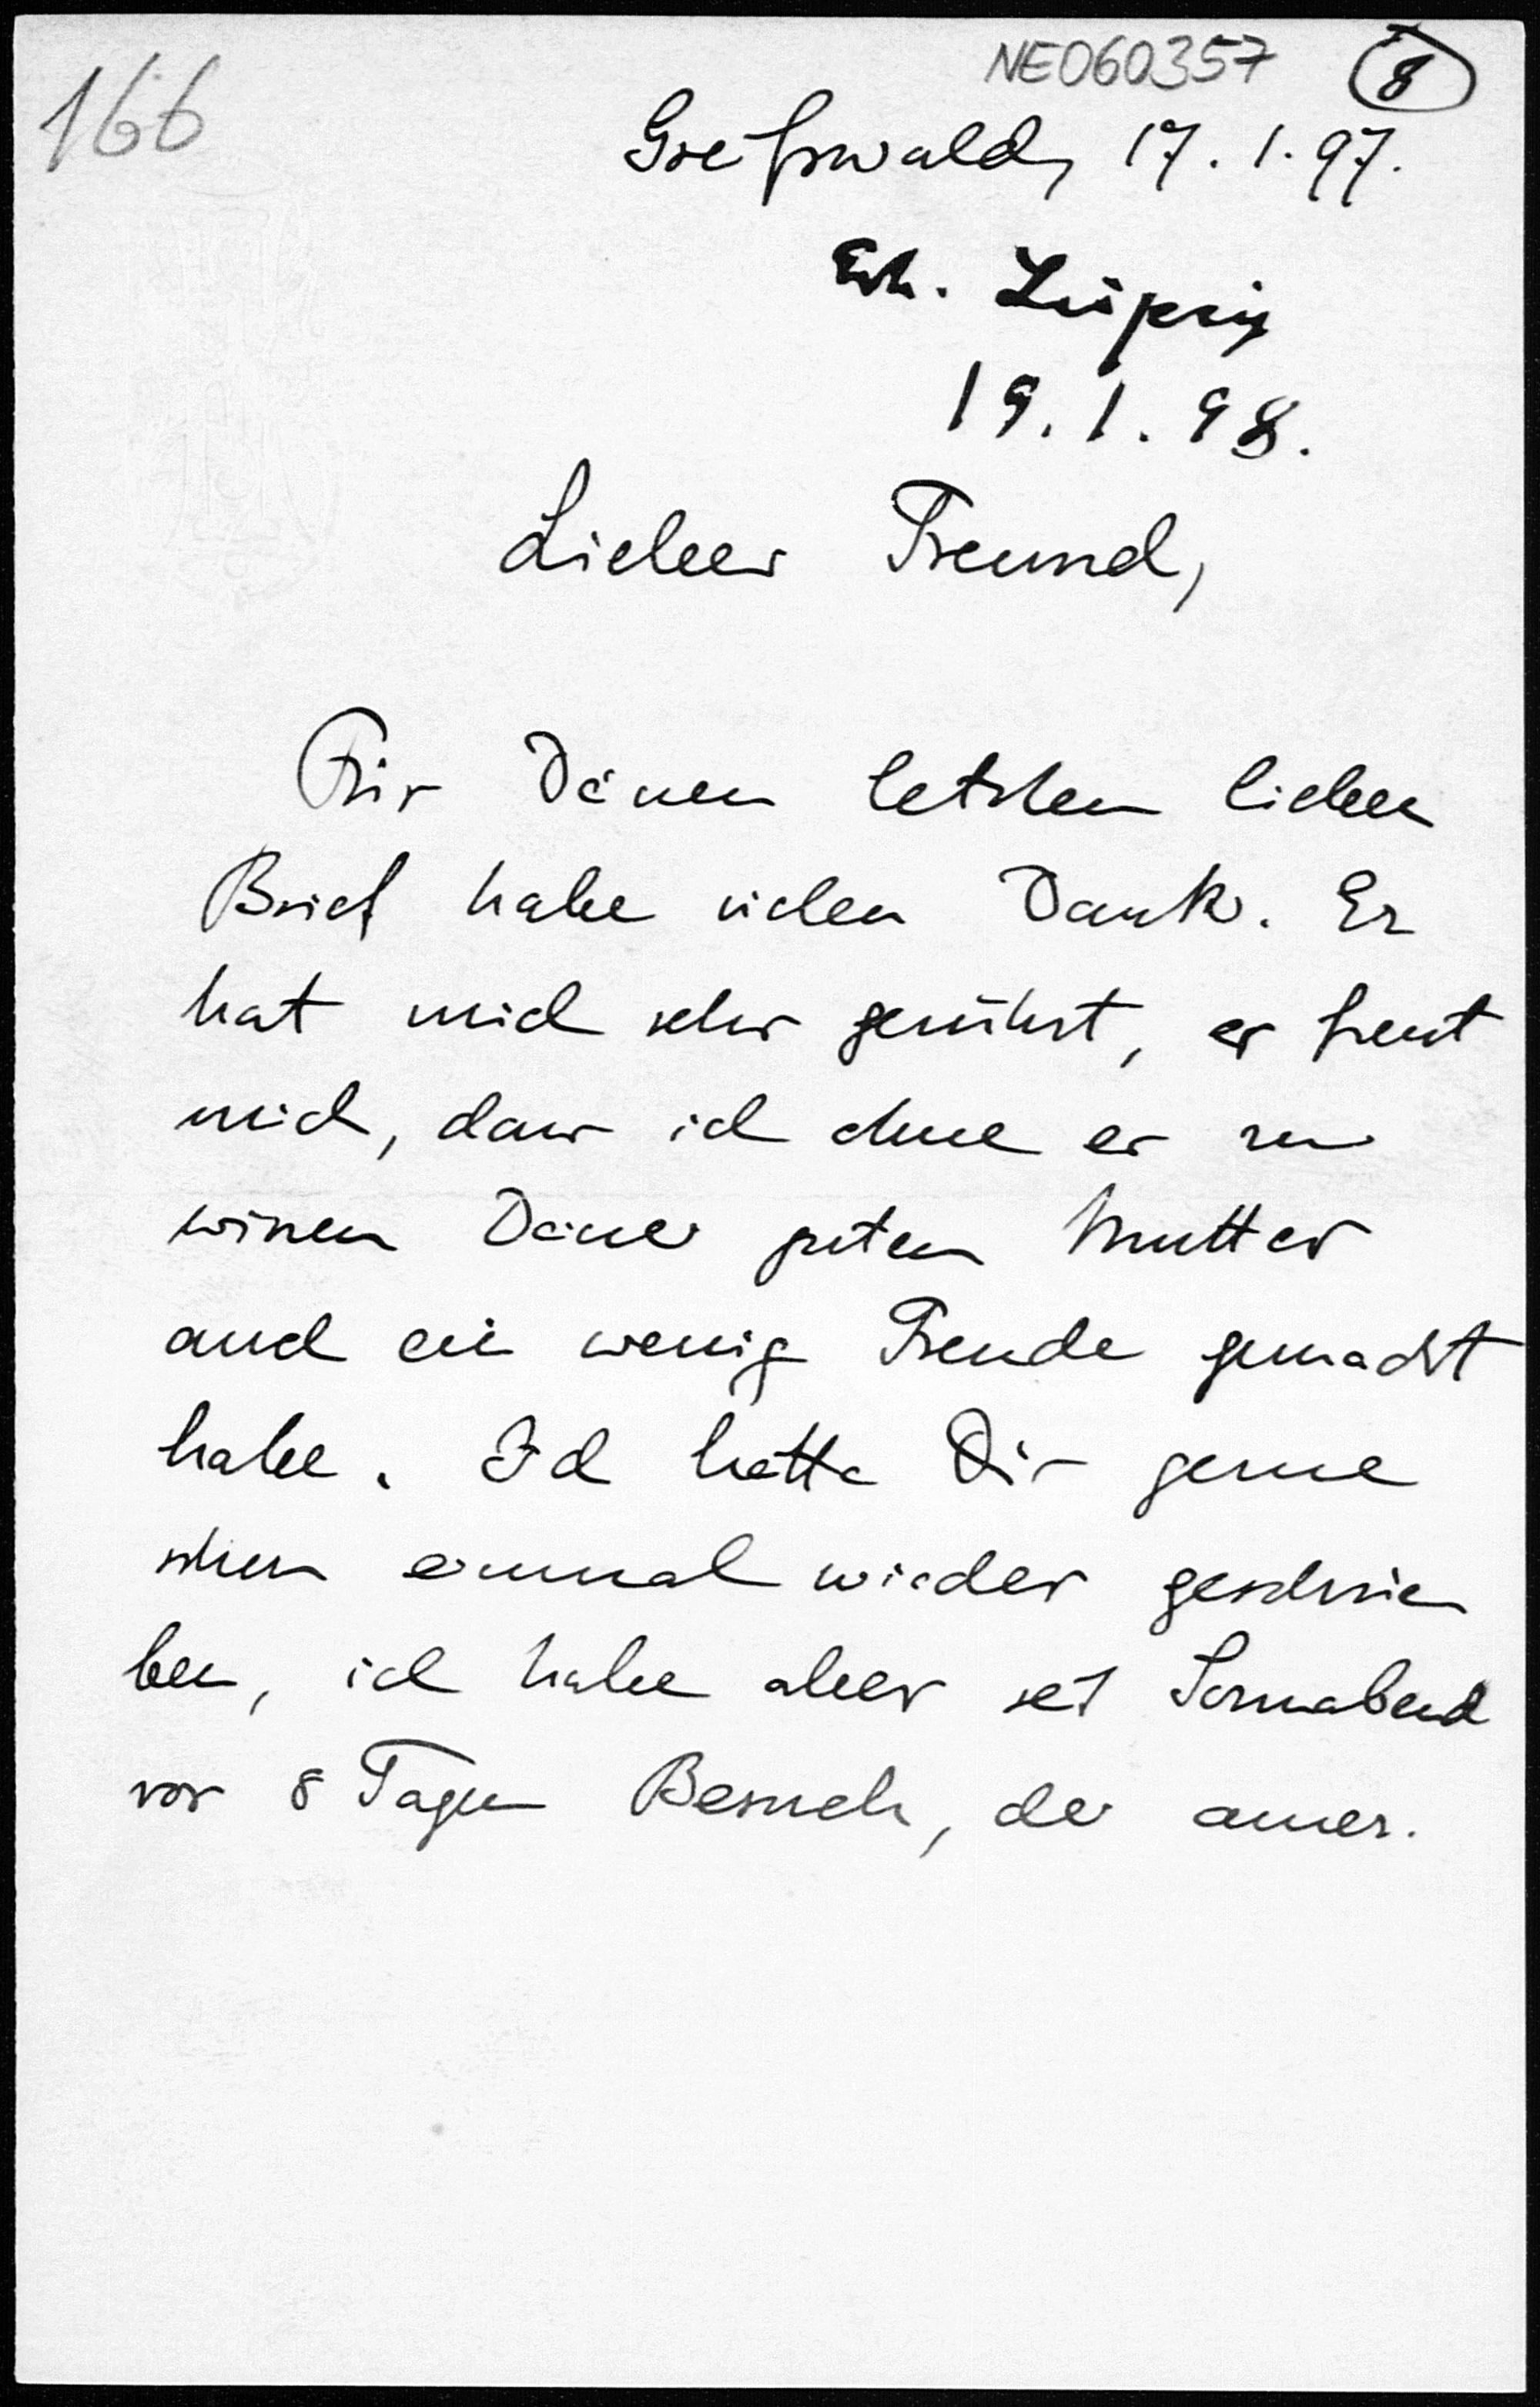 166
NE060357 8
Greifswald, 17. 1. 97.
Erh. Leipzig
19. 1. 98.
Lieber Freund,
Für Deinen letzten lieben
Brief habe vielen Dank. Er
hat mich sehr gerührt, es freut
mich, dass ich ohne es zu
wissen Deiner guten Mutter
auch ein wenig Freude gemacht
habe. Ich hätte Dir gerne
schon einmal wieder geschrie
ben, ich habe aber seit Sonnabend
vor 8 Tagen Besuch, der amer.